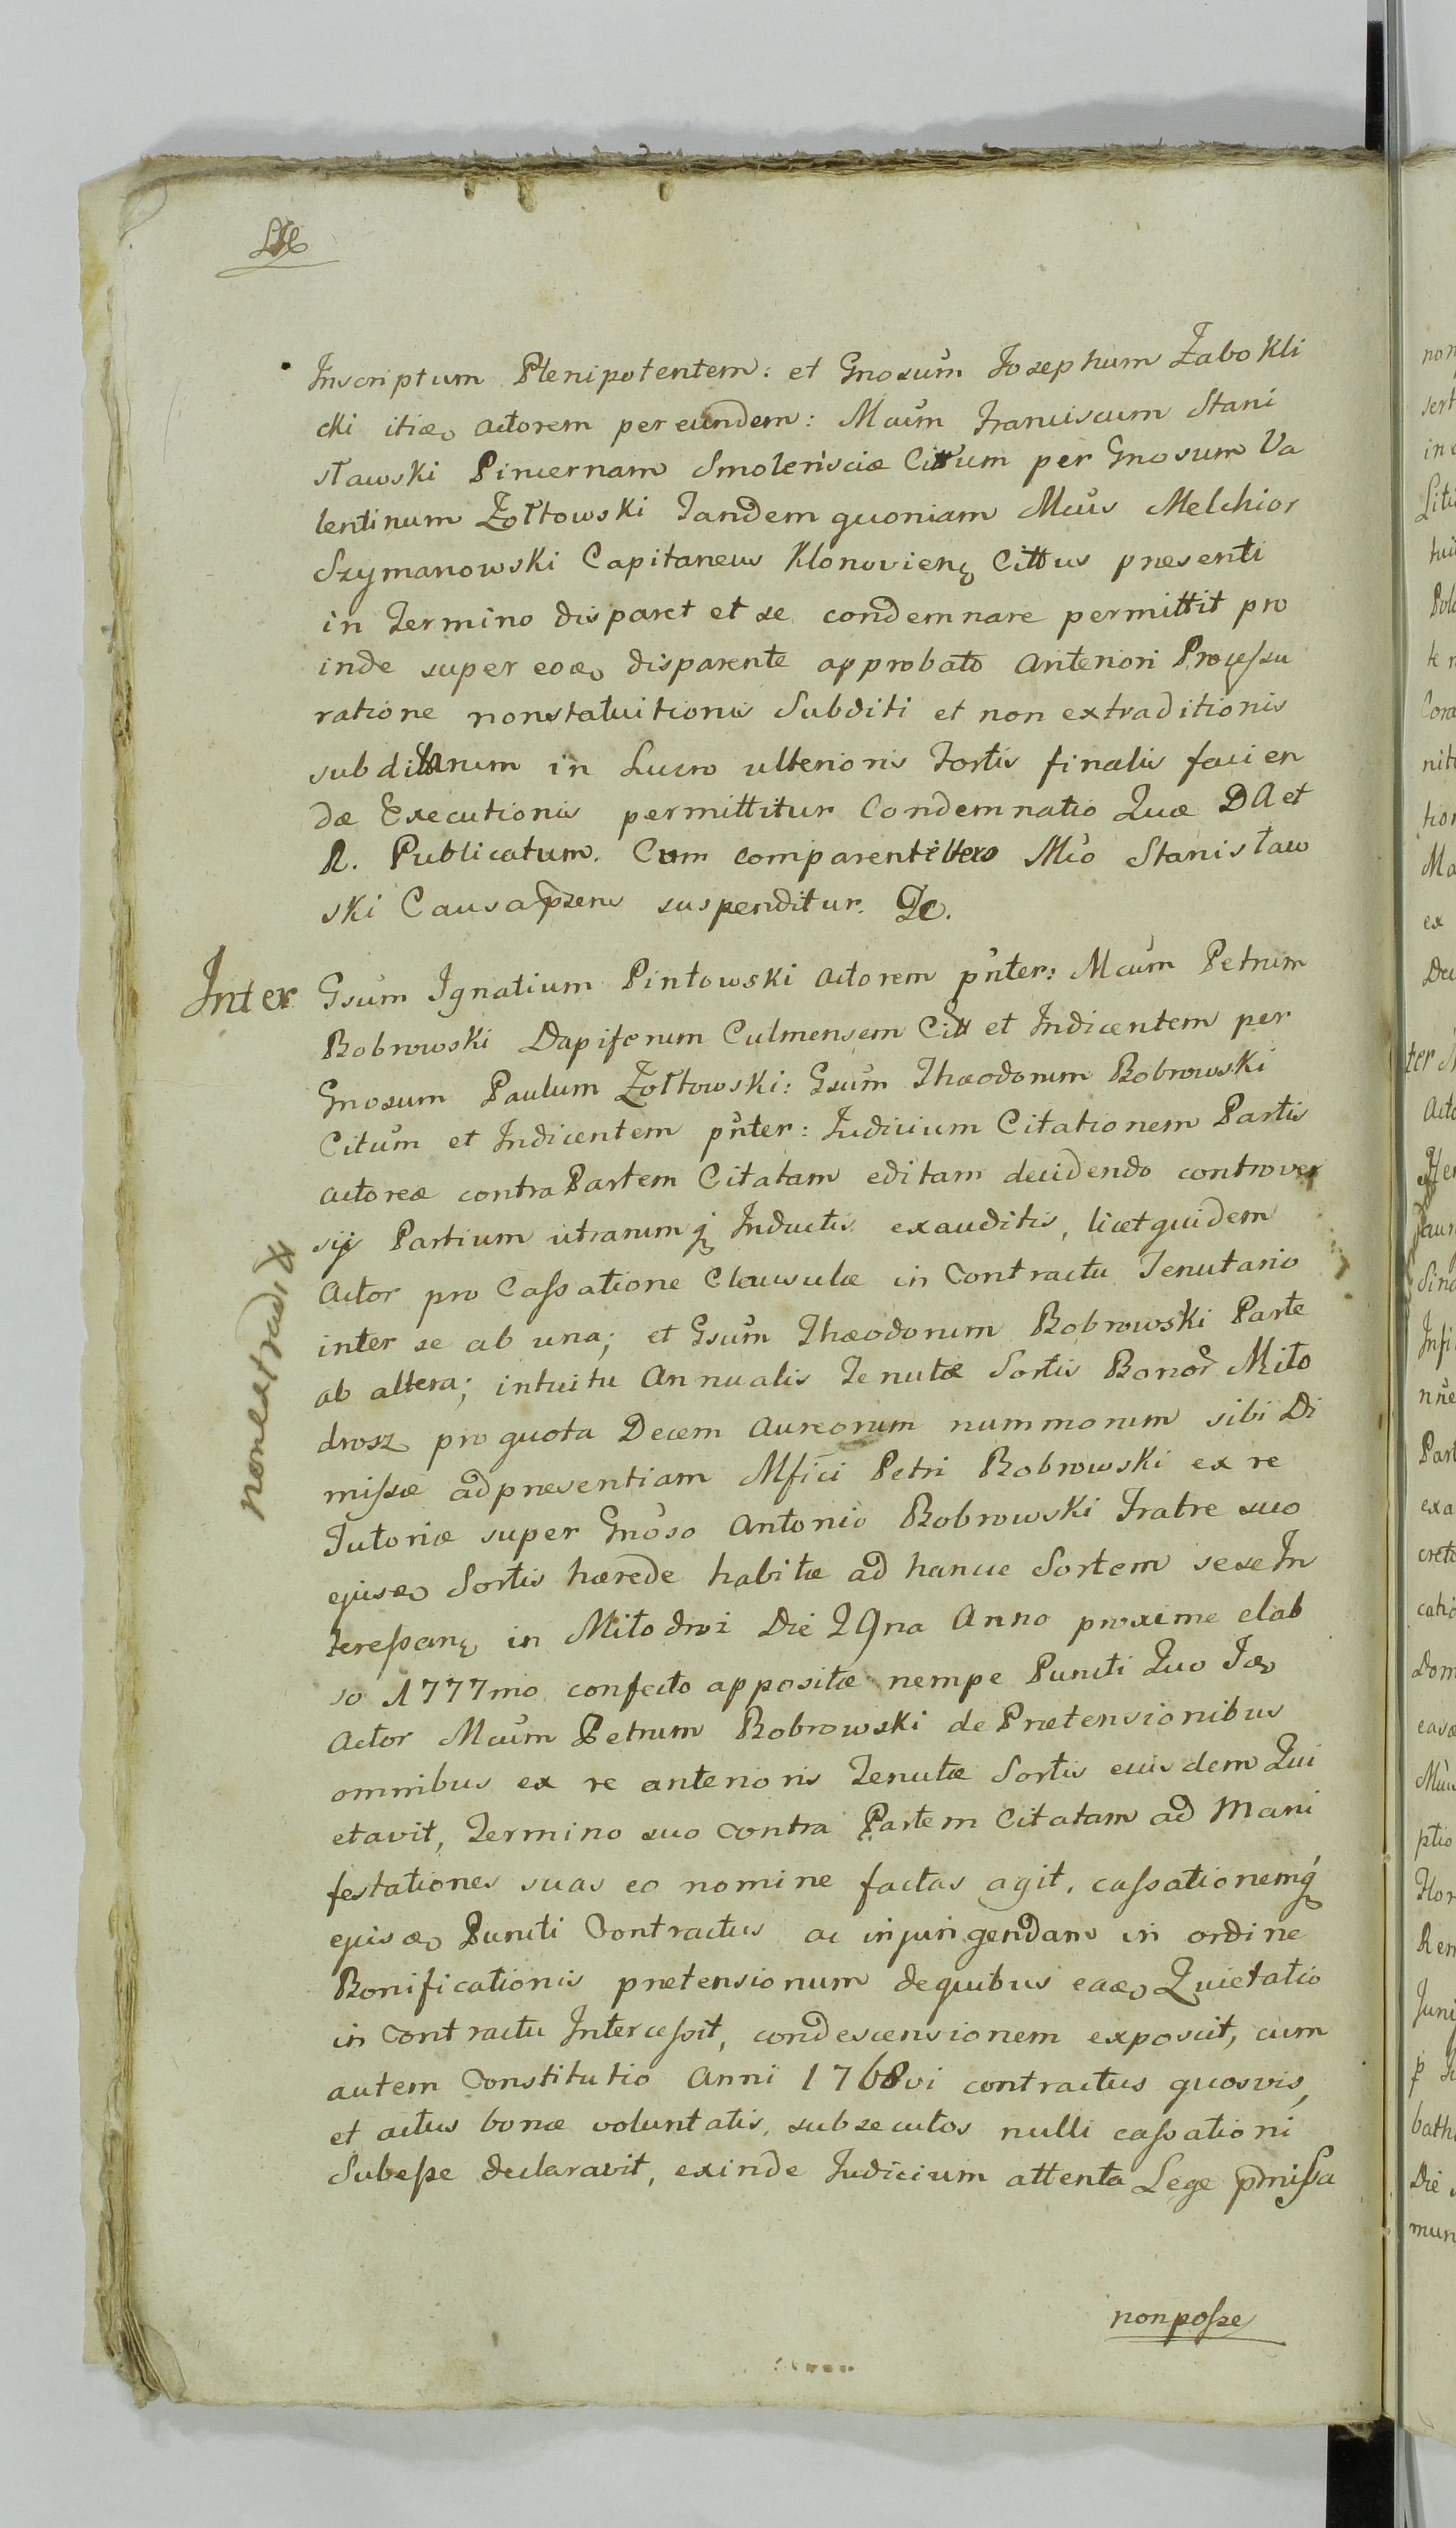 Inscriptum Plenipotentem: et Gnosum Josephum Zabokli
cki itiæ Actorem per eundem: Mcum Franciscum Stani
sławski Pincernam Smolensciæ Cittum per Gnosum Va
lentinum Żołtowski Tandem quoniam Mcus Melchior
Szymanowski Capitaneus Klonovien Cittus præsenti
in Termino disparet et se condemnare permittit pro
inde super eoæ disparente approbato anteriori Processu
ratione nonstatuitionis Subditi et non extraditionis
subditarum in Lucro ulterioris Fortis finalis facien
dæ Executionis permittitur Condemnatio Quæ D A et
R. Publicatum. Cum comparente Vero Mco Stanisław
ski Causa pzens suspenditur.
Inter Gsum Ignatium Pintowski Actorem pnter: Mcum Petrum
Bobrowski Dapiferum Culmensem Citt et Indicentem per
Gnosum Paulum Żołtowski: Gsum Thæodorum Bobrowski
Citum et Indicentem pnter: Judicium Citationem Partis
Actoreæ contra Partem Citatam editam decidendo controver
sij Partium utrarumq Inductis exauditis, licet quidem
Actor pro Cassatione Clausulæ in Contractu Tenutario
inter se ab una; et Gsum Thæodorum Bobrowski Parte
ab altera; intuitu Annualis Tenutæ Sortis Bonor Miło
drosz pro quota Decem Aureorum nummorum sibi Di
missæ ad præsentiam Mfici Petri Bobrowski ex re
Tutoriæ super Gnoso Antonio Bobrowski Fratre suo
ejusæ Sortis hærede habitæ ad hancce Sortem sese In
teressan in Miłodroz Die 29na Anno proxime elab
so 1777mo confecto appositæ nempe Puncti Quo Iæ
Actor Mcum Petrum Bobrowski de Prætensionibus
omnibus ex re anterioris Tenutæ Sortis eiusdem Qui
etavit, Termino suo contra Partem Citatam ad Mani
festationes suas eo nomine factas agit, cassationemq
ejusæ Puncti Contractus ac injungendam in ordine
Bonificationis prætensionum de quibus eaæ Quietatio
in Contractu Intercessit, condescensionem exposcit, cum
autem Constitutio Anni 1768vi contractus quosvis,
et actus bonæ voluntatis, subsecutos nulli cassationi
Subesse declaravit, exinde Judicium attenta Lege pmissa
nonposse
nonextradit